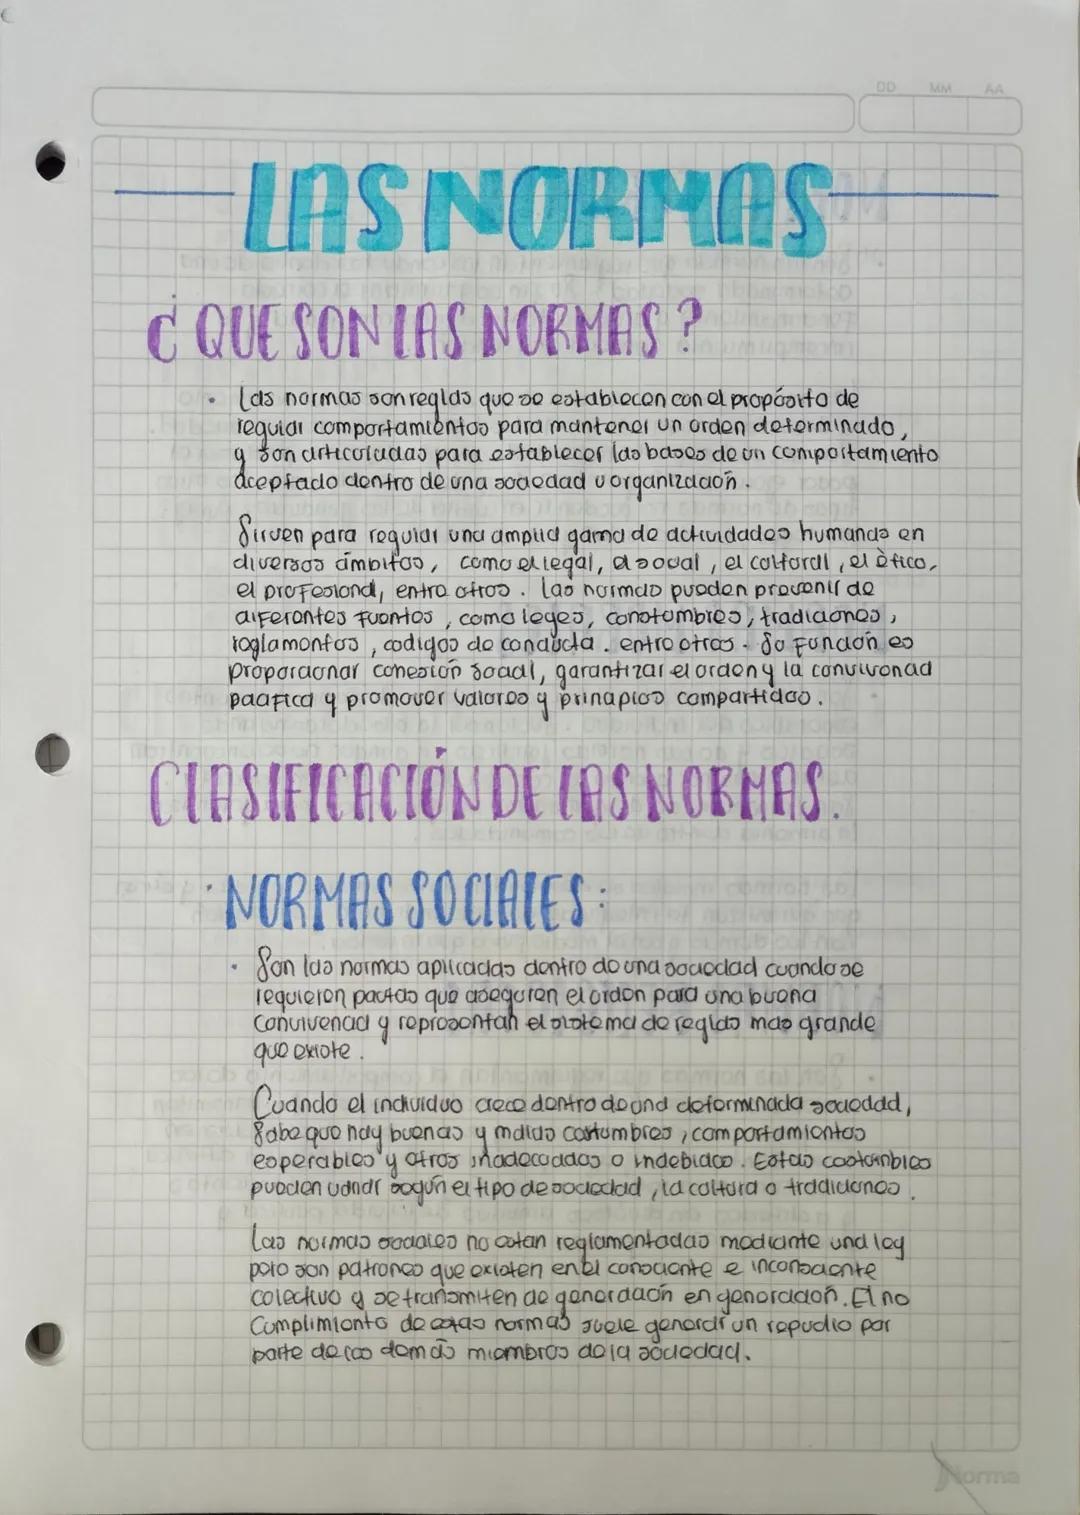 DD MM AA
LAS NORMAS
¿QUE SON LAS NORMAS?
• Las normas son reglas que se establecen con el propósito de
regular comportamientos para mantener un orden determinado,
y son articuladas para establecer las bases de un comportamiento
aceptado dentro de una sociedad u organización.
Sirven para regular una amplia gama de actividades humanas en
diversos ámbitos, como el legal, el social, el cultural, el ético,
el profesional, entre otros. Las normas pueden provenir de
diferentes fuentes, como leyes, constumbres, tradiciones,
reglamentos, codigos de conducta. entre otros. Su función es
proporcionar conesión social, garantizar el orden y la convivencia
pacifica y promover valores y principios compartidos.
CLASIFICACIÓN DE LAS NORMAS.
• NORMAS SOCIALES:
• Son las normas aplicadas dentro de una sociedad cuando se
requieren pautas que aseguren el orden para una buena
convivencia y representan el sistema de reglas mas grande
que existe.
Cuando el individuo crece dentro de una determinada sociedad,
sabe que hay buenas y malas costumbres, comportamientos
esperables y otros inadecuados o indebidos. Estas costumbres
pueden variar según el tipo de sociedad, la cultura o tradiciones.
Las normas sociales no estan reglamentadas mediante una ley
pero son patrones que existen en el consciente e inconsciente
colectivo y se transmiten de generación en generación. El no
cumplimiento de estas normas suele generar un repudio por
parte de los demás miembros de la sociedad.
Norma